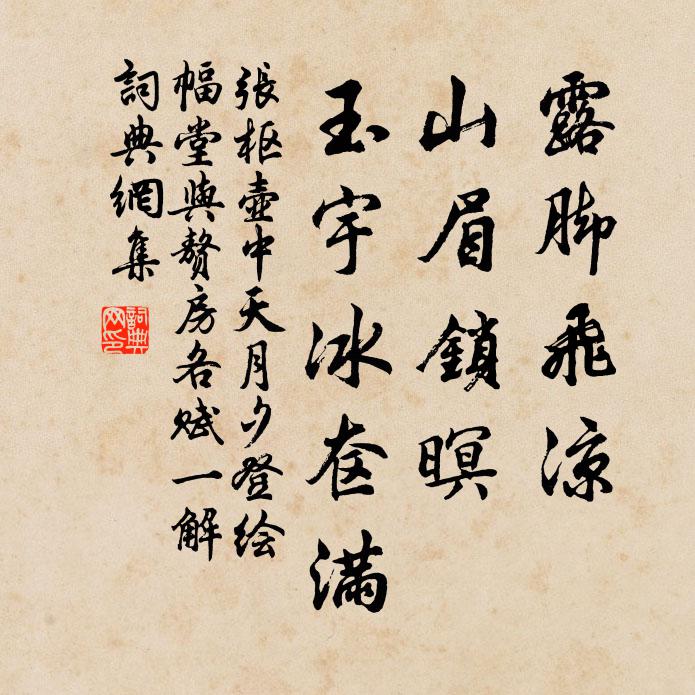 露脚飛涼
山眉鎖暝
玉宇冰奁滿
張枢壺中天月夕登绘
幅堂與贅房各赋一解
詞典網集
詞典网印